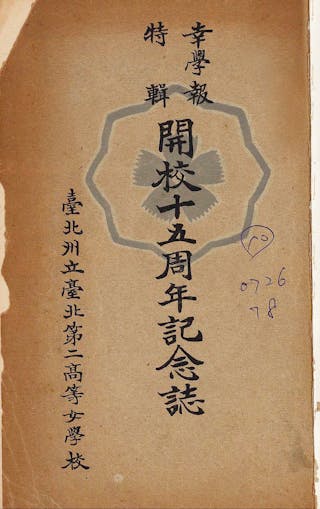 幸學報
特輯
開校十五周年記念誌
臺北州立臺北第二高等女學校
0726
78